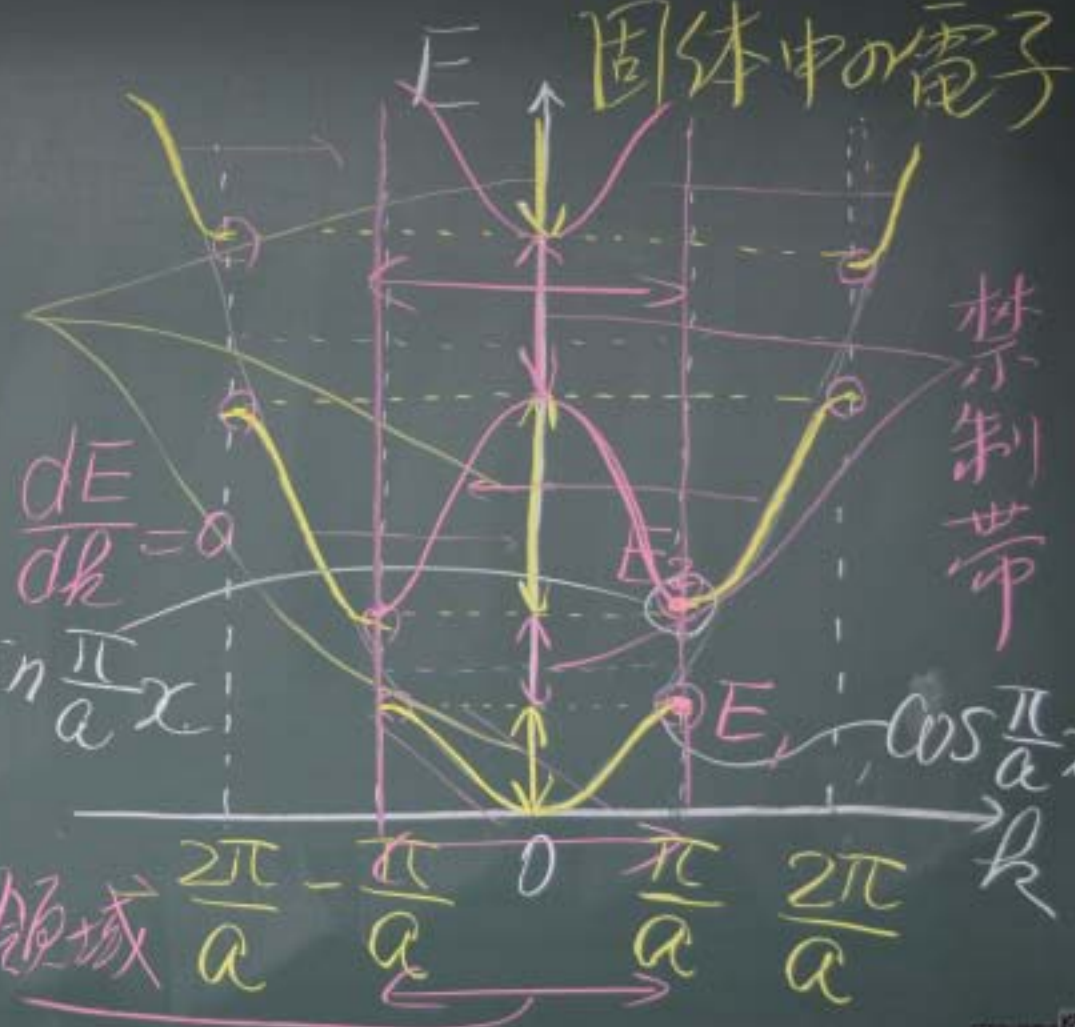 固体中の電子
E
禁制帯
dE/dk = 0
E₂
n π/a x
E₁
cos π/a x
k
領域
-2π/a -π/a 0 π/a 2π/a